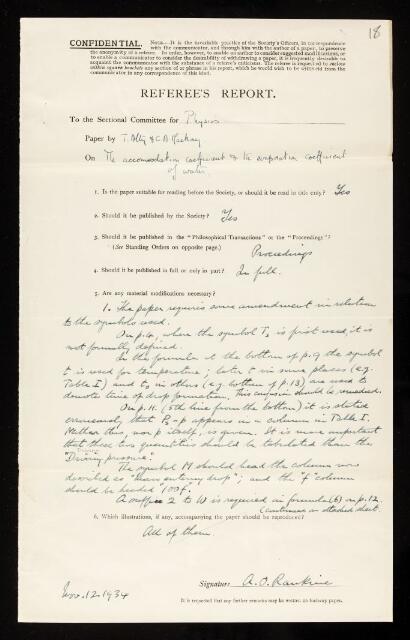 18
CONFIDENTIAL. NOTE.—It is the invariable practice of the Society's Officers, in correspondence
with the communicator, and through him with the author of a paper, to preserve
the anonymity of a referee. In order, however, to enable an author to consider suggested modifications, or
to enable a communicator to consider the desirability of withdrawing a paper, it is frequently desirable to
acquaint the communicator with the substance of a referee's criticisms. The referee is requested to enclose
within square brackets any section of or phrase in his report, which he would wish to be withheld from the
communicator in any correspondence of this kind.
REFEREE'S REPORT.
To the Sectional Committee for Physics
Paper by T. Alty & C. A. Mackay
On The accommodation coefficient & the evaporation coefficient
of water.
1. Is the paper suitable for reading before the Society, or should it be read in title only? Yes
2. Should it be published by the Society? Yes
3. Should it be published in the "Philosophical Transactions" or the "Proceedings"?
(See Standing Orders on opposite page.) Proceedings
4. Should it be published in full or only in part? In full.
5. Are any material modifications necessary?
1. The paper requires some amendment in relation
to the symbols used.
On p.4, where the symbol T₂ is first used, it is
not formally defined.
In the formula at the bottom of p.9 the symbol
t is used for temperature; later t in some places (e.g.
Table I) and t₀ in others (e.g. bottom of p.13) are used to
denote time of drop formation. This confusion should be remedied.
On p.11. (5th line from the bottom) it is stated
erroneously that p appears in a column in Table I.
Neither this, nor p itself, is given. It is more important
that these two quantities should be tabulated than the
"Driving pressure".
The symbol M should head the column now
described as "mass entering drop"; and the "f" column
should be headed "100f".
A suffix 2 to W is required in formula (6) on p.12.
(continued on attached sheet.
6. Which illustrations, if any, accompanying the paper should be reproduced?
All of them.
Signature A. O. Rankine
Nov. 12. 1934
It is requested that any further remarks may be written on